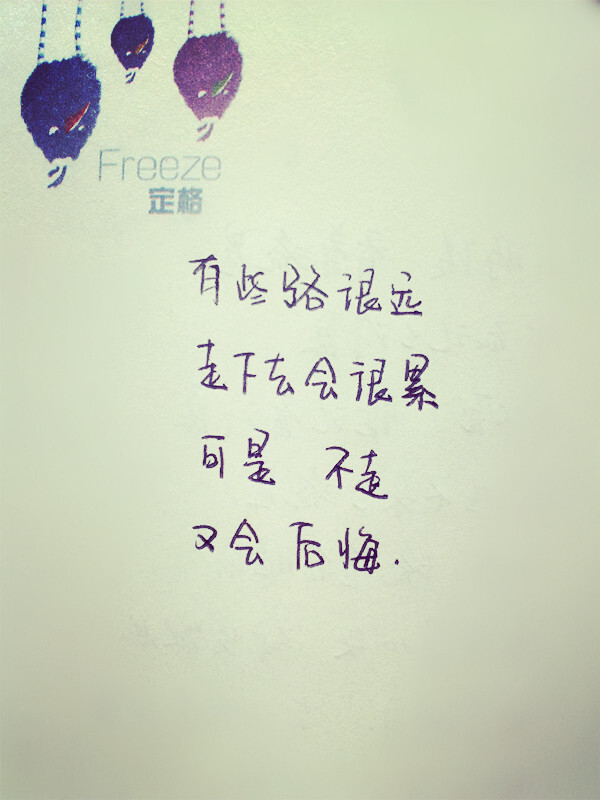 Freeze
定格
有些路很远
走下去会很累
可是 不走
又会后悔.